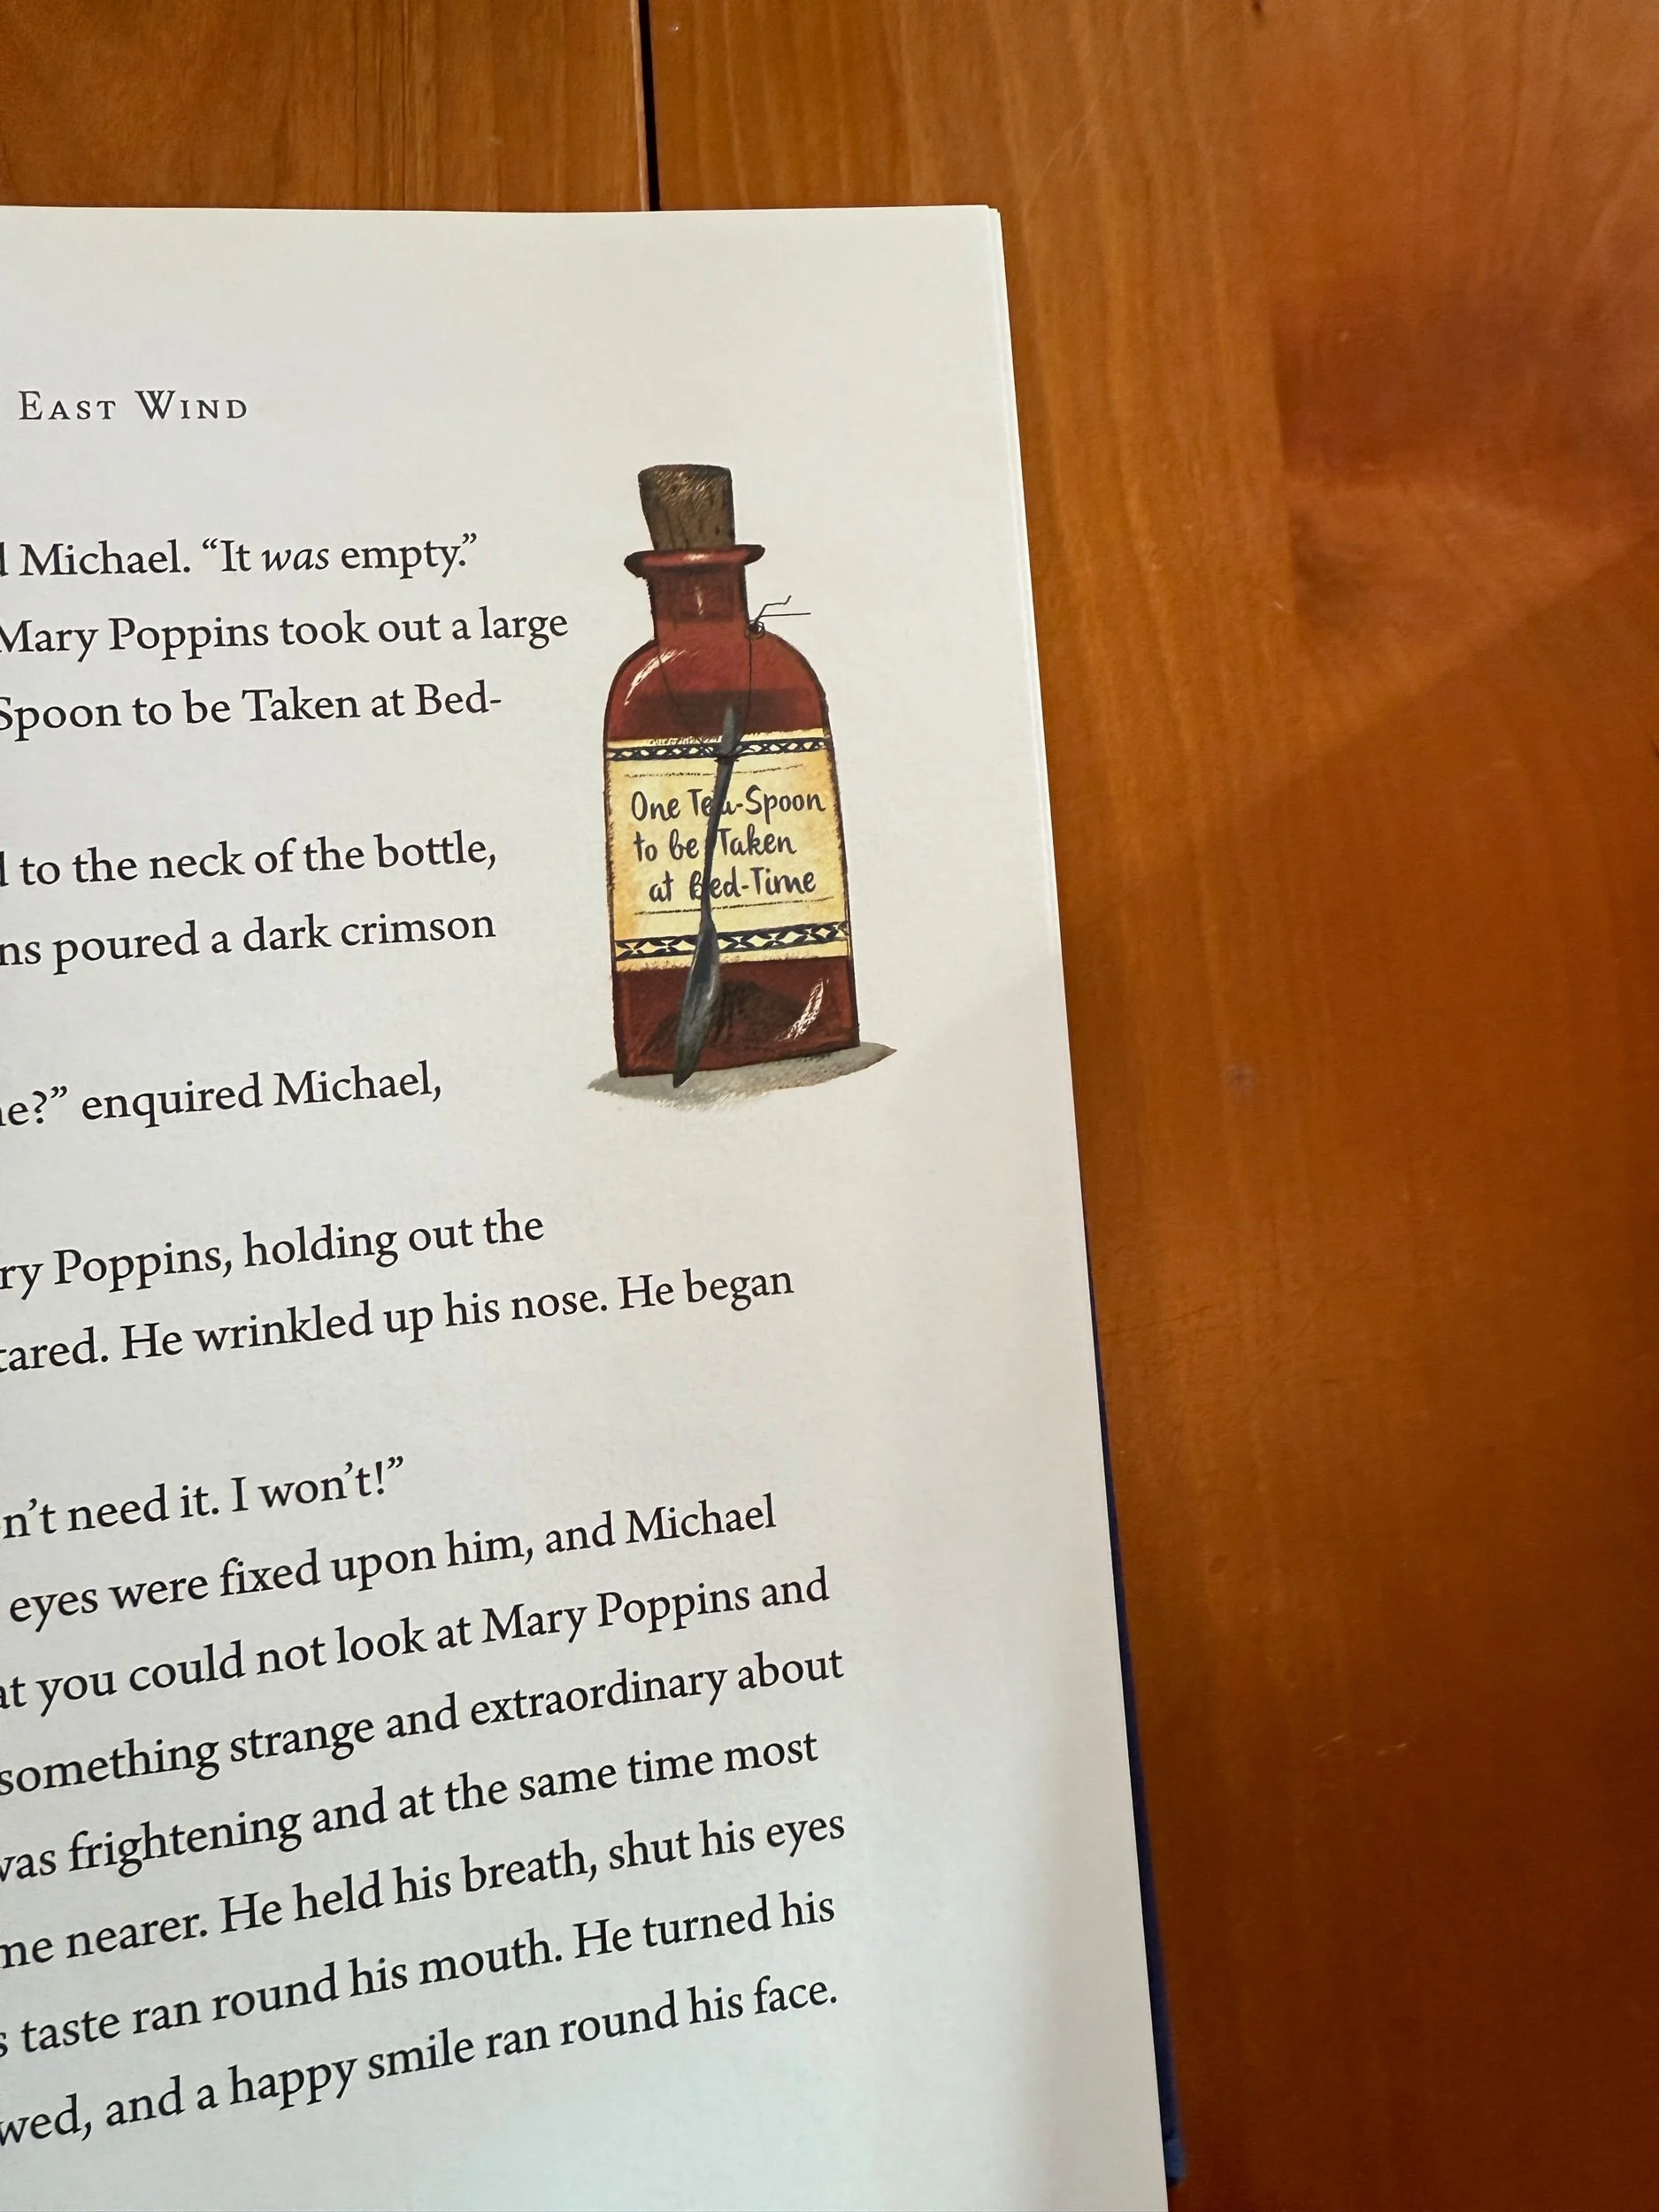 EAST WIND
Michael. “It was empty.”
Mary Poppins took out a large
Spoon to be Taken at Bed-
to the neck of the bottle,
poured a dark crimson
enquired Michael,
Poppins, holding out the
He wrinkled up his nose. He began
need it. I won’t!”
eyes were fixed upon him, and Michael
you could not look at Mary Poppins and
something strange and extraordinary about
frightening and at the same time most
nearer. He held his breath, shut his eyes
taste ran round his mouth. He turned his
and a happy smile ran round his face.
One Tea-Spoon
to be Taken
at Bed-Time